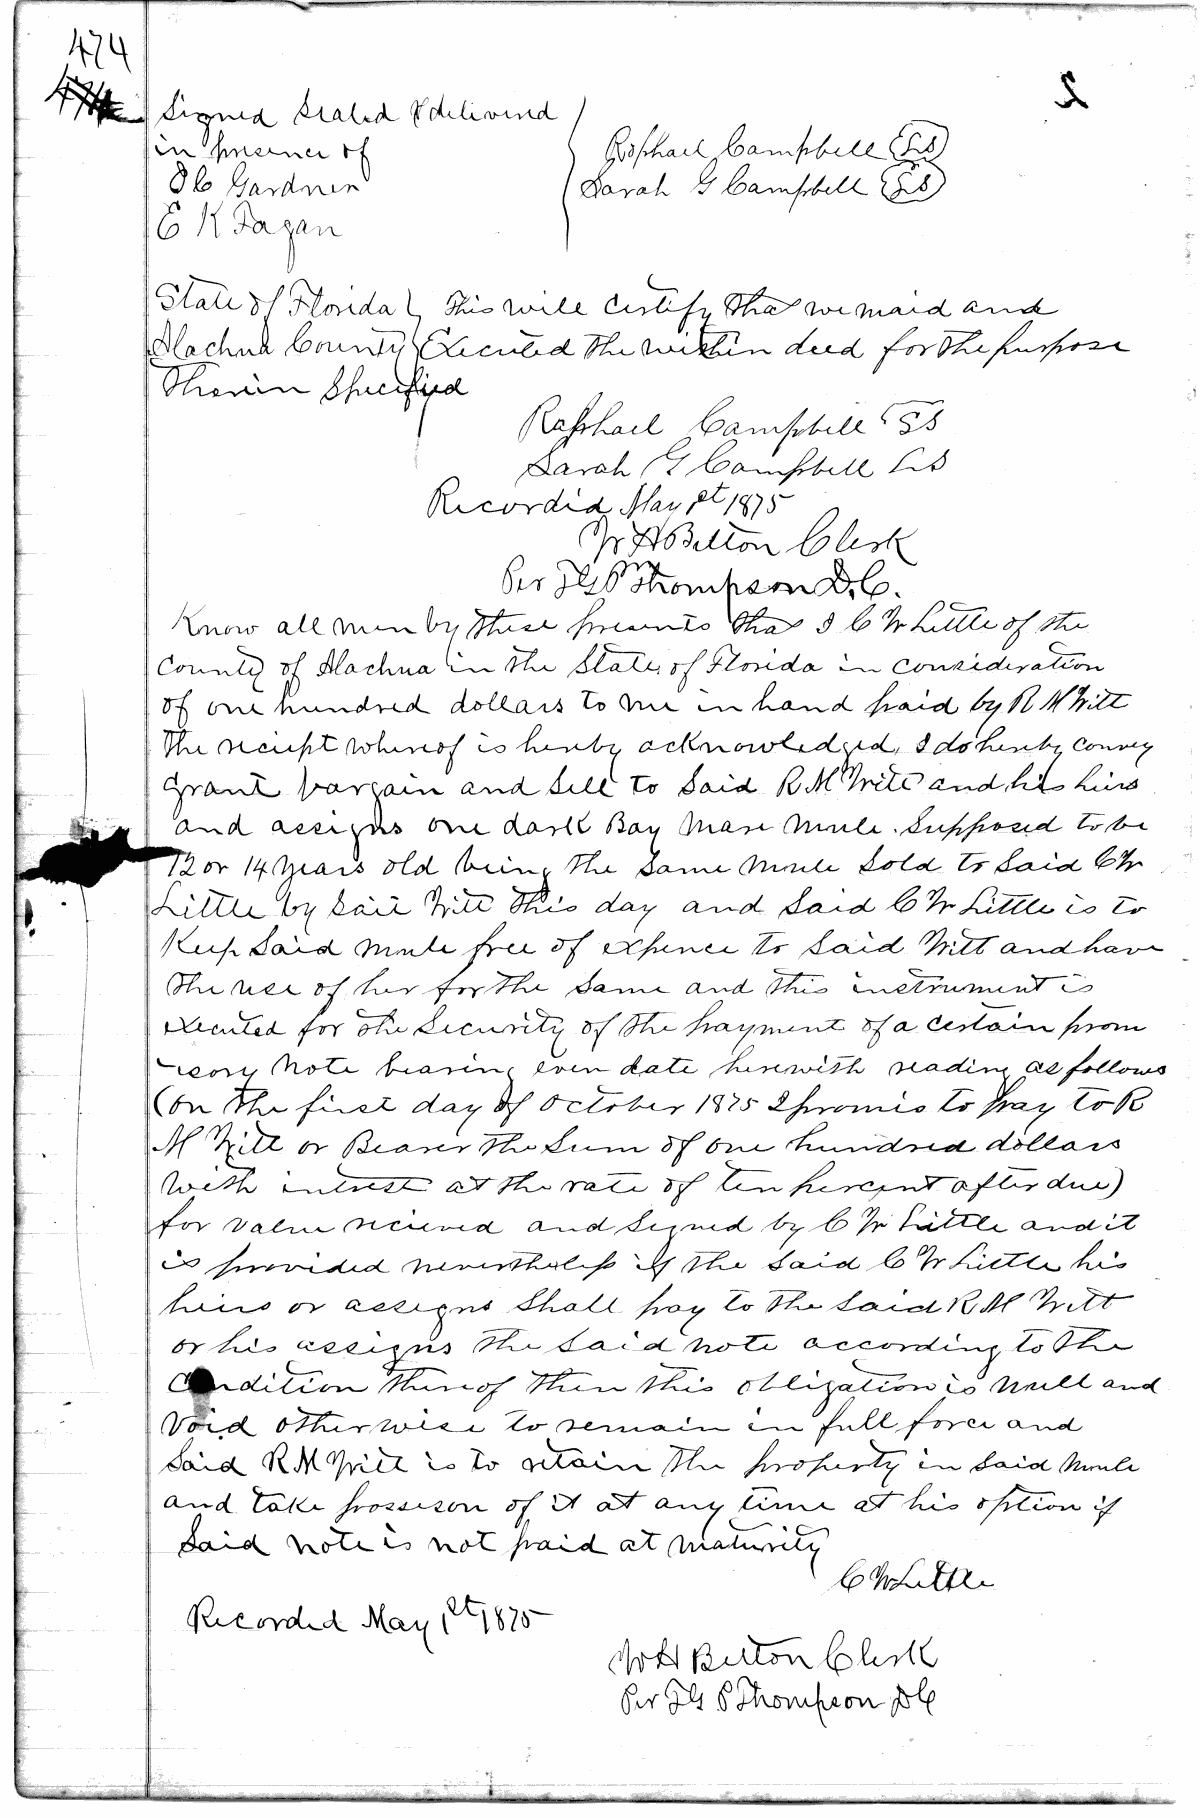 474
2
Signed Sealed & delivered
in presence of
Raphael Campbell LS
Gardner
Sarah G Campbell LS
E K Fagan
State of Florida } This will certify that we maid and
Alachua County } Executed the within deed for the purpose
Therein Specified
Raphael Campbell LS
Sarah G Campbell LS
Recordid May 1st 1875
Clerk
Per Thompson D.C.
Know all men by these presents that I C W Little of the
county of Alachua in the State of Florida in consideration
of one hundred dollars to me in hand paid by R M Witt
the reciept whereof is hereby acknowledged, I do hereby convey
grant bargain and Sell to Said R M Witt and his heirs
and assigns one dark Bay mare mule. Supposed to be
12 or 14 years old being the Same mule Sold to Said C W
Little by Said Witt this day and Said C W Little is to
Keep Said mule free of expence to Said Witt and have
the use of her for the Same and this instrument is
executed for the Security of the payment of a certain prom
issory note bearing even date herewith reading as follows
(On the first day of October 1875 I promis to pay to R
M Witt or Bearer the Sum of one hundred dollars
with intrest at the rate of ten percent after due)
for value recieved and Signed by C W Little and it
is provided nevertheless if the Said C W Little his
heirs or assigns Shall pay to the Said R M Witt
or his assigns the Said note according to the
condition thereof then this obligation is null and
void otherwise to remain in full force and
Said R M Witt is to retain the property in Said mule
and take prossesson of it at any time at his option if
Said note is not paid at maturity
C W Little
Recorded May 1st 1875
W H Belton Clerk
Per J G P Thompson D C